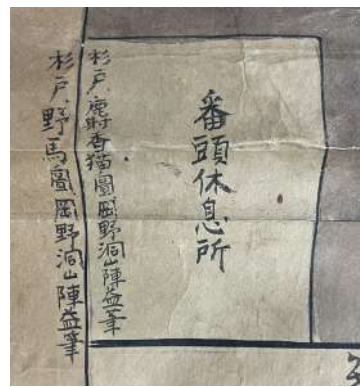 番頭休息所
杉戸麝香猫圖岡野洞山陣益筆
杉戸野馬圖岡野洞山陣益筆